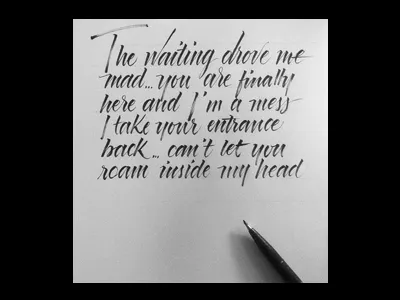 The waiting drove me
mad... you are finally
here and I'm a mess
I take your entrance
back... can't let you
roam inside my head